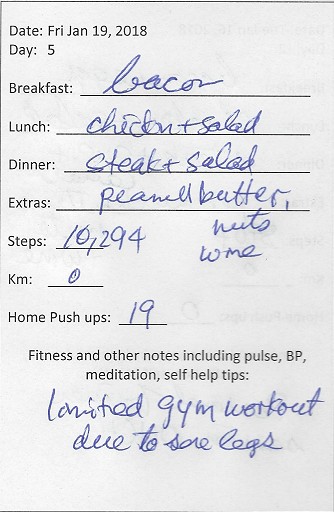 Date: Fri Jan 19, 2018
Day: 5
Breakfast: bacon
Lunch: chicken + salad
Dinner: steak + salad
Extras: peanut butter,
nuts
wine
Steps: 10,294
Km: 0
Home Push ups: 19
Fitness and other notes including pulse, BP,
meditation, self help tips:
Limited gym workout
due to sore legs